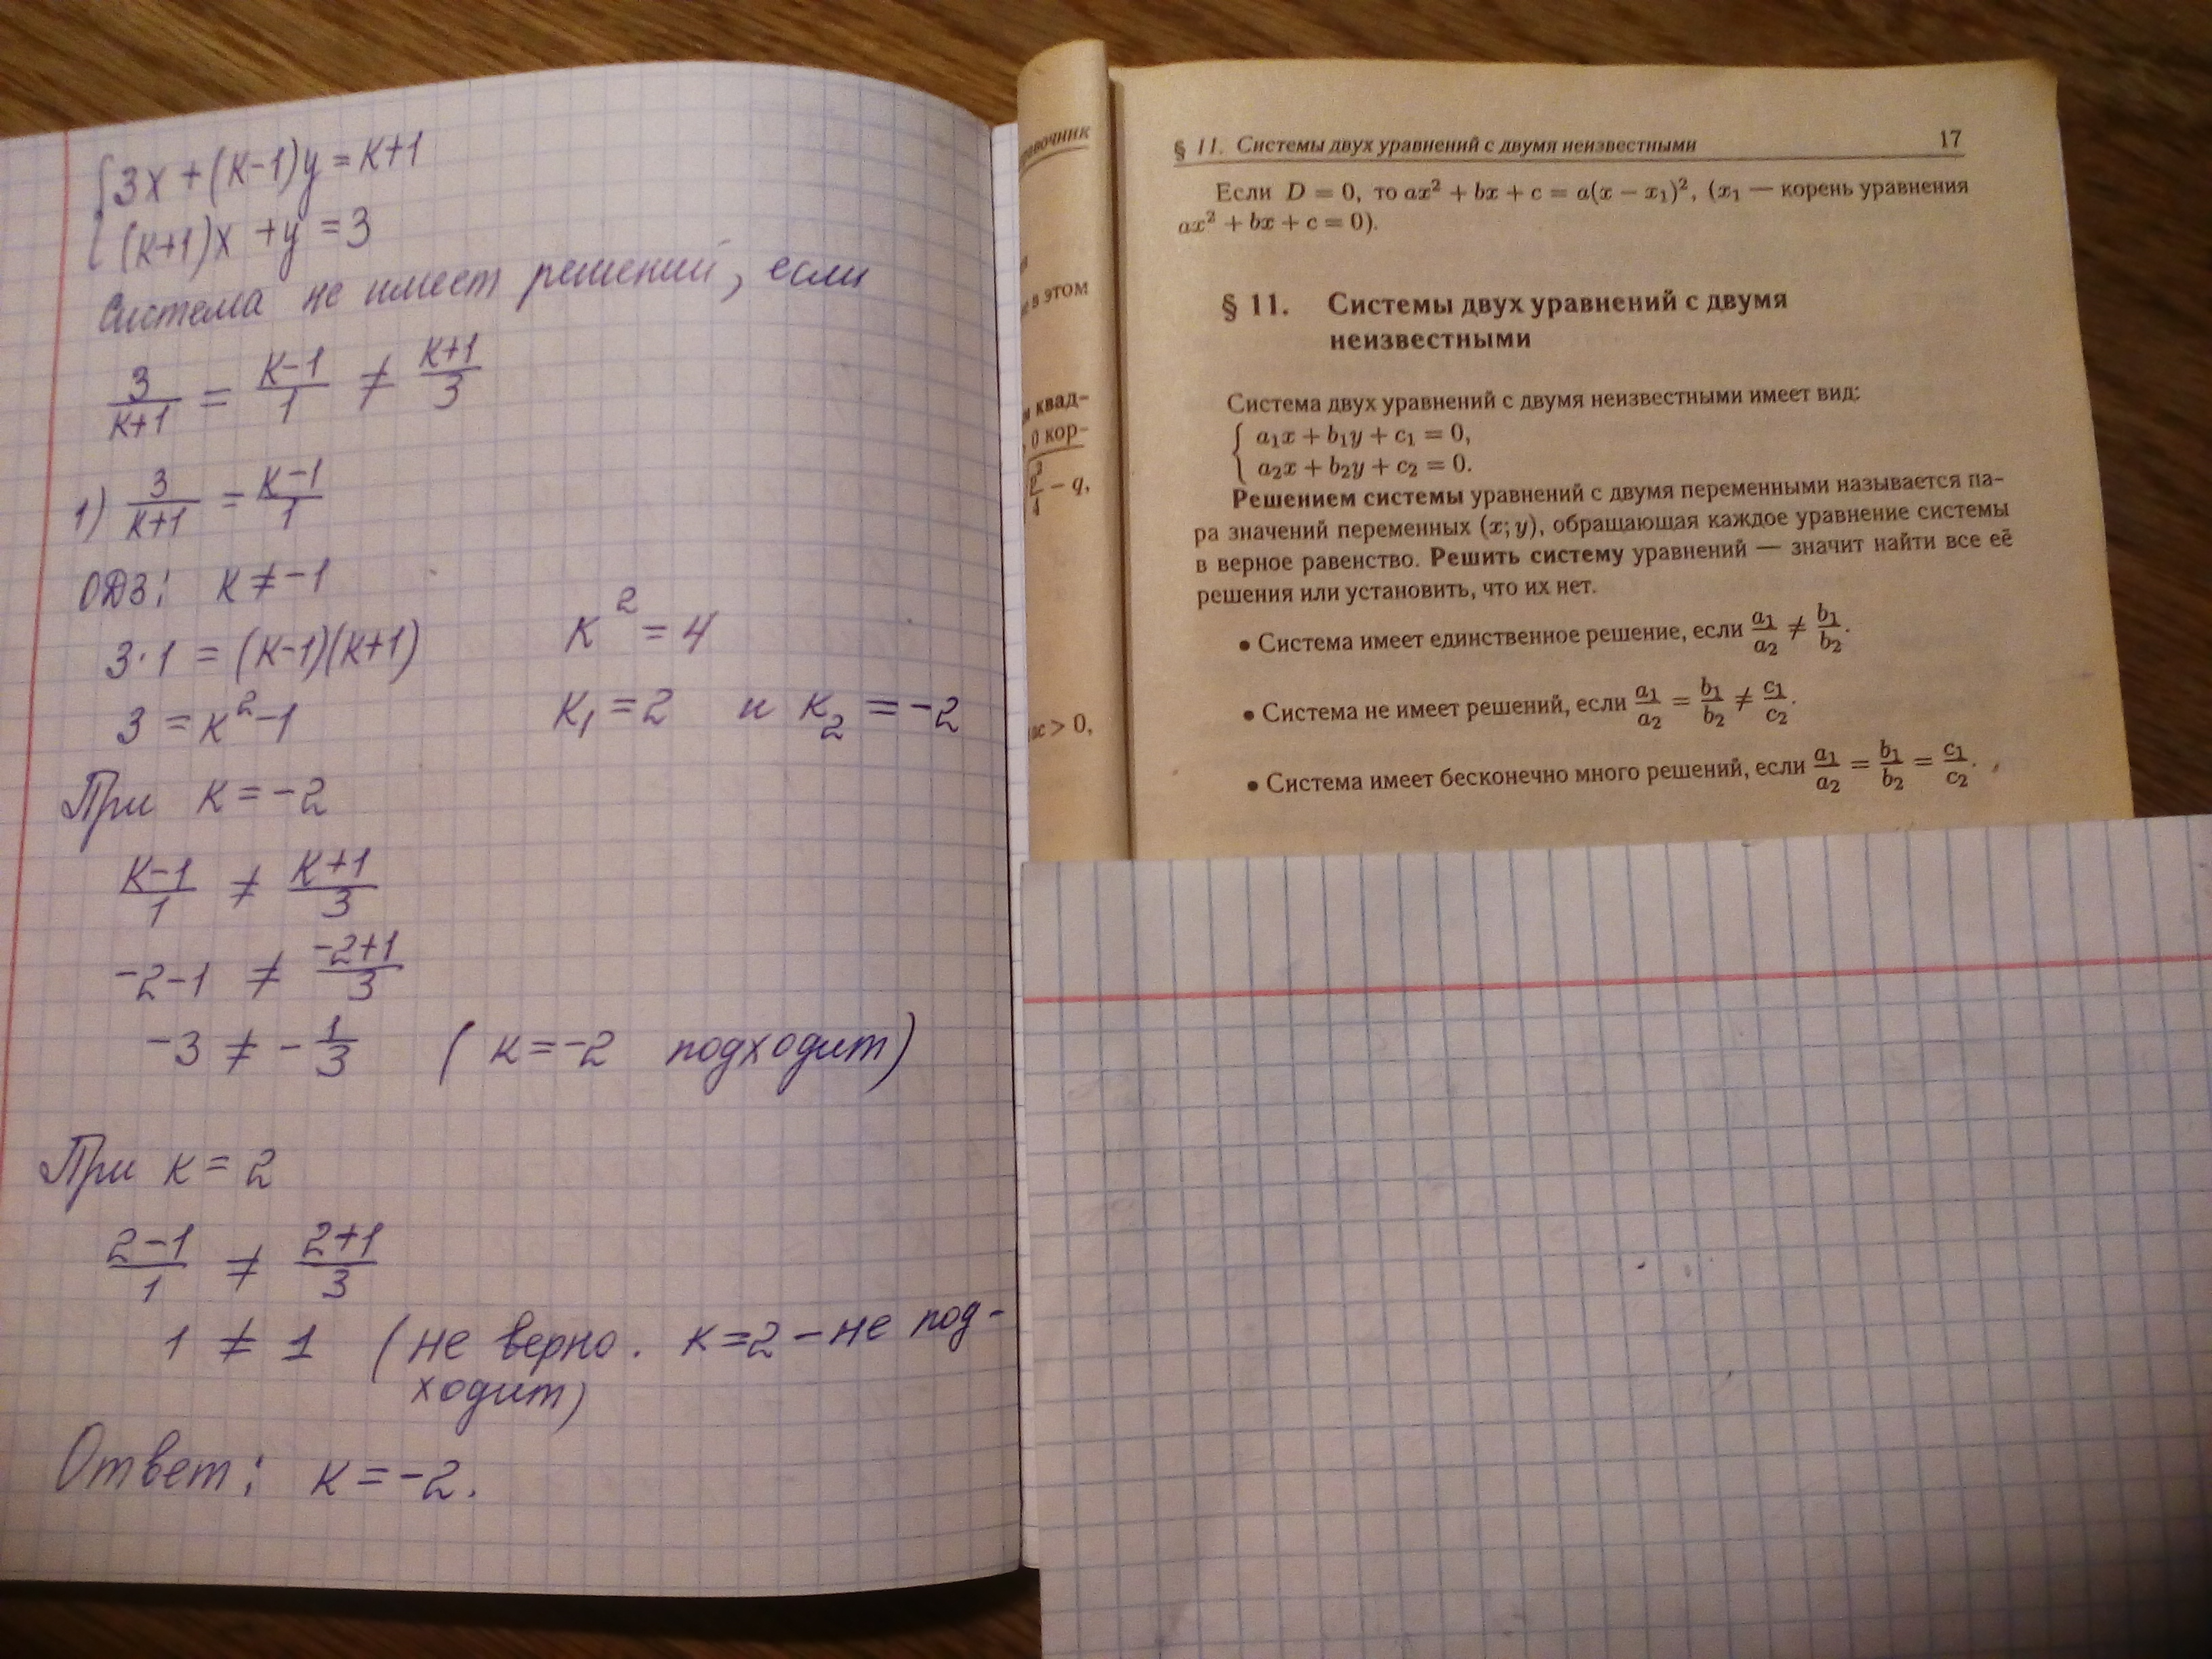 { 3x + (k-1)y = k+1
(k+1)x + y = 3
Система не имеет решений, если
3/(k+1) = (k-1)/1 ≠ (k+1)/3
1) 3/(k+1) = (k-1)/1
ОДЗ: k ≠ -1
3·1 = (k-1)(k+1)
3 = k² - 1
k² = 4
k₁ = 2 и k₂ = -2
При k = -2
(k-1)/1 ≠ (k+1)/3
-2-1 ≠ (-2+1)/3
-3 ≠ -1/3 (k=-2 подходит)
При k = 2
(2-1)/1 ≠ (2+1)/3
1 ≠ 1 (не верно. k=2 – не под-
ходит)
Ответ: k = -2.
в этом
квад-
0 кор-
/4 − q,
> 0,
§ 11. Системы двух уравнений с двумя неизвестными 17
Если D = 0, то ax² + bx + c = a(x − x₁)², (x₁ — корень уравнения
ax² + bx + c = 0).
§ 11. Системы двух уравнений с двумя
неизвестными
Система двух уравнений с двумя неизвестными имеет вид:
{ a₁x + b₁y + c₁ = 0,
a₂x + b₂y + c₂ = 0.
Решением системы уравнений с двумя переменными называется па-
ра значений переменных (x; y), обращающая каждое уравнение системы
в верное равенство. Решить систему уравнений — значит найти все её
решения или установить, что их нет.
• Система имеет единственное решение, если a₁/a₂ ≠ b₁/b₂.
• Система не имеет решений, если a₁/a₂ = b₁/b₂ ≠ c₁/c₂.
• Система имеет бесконечно много решений, если a₁/a₂ = b₁/b₂ = c₁/c₂.